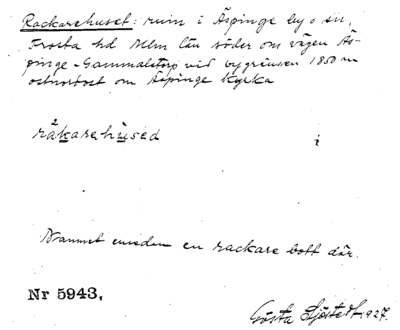 Rackarehuset: ruin i Äspinge by o sn,
Frosta hd Mlm län söder om vägen Äs-
pinge-Gammalstorp vid bygränsen 1850 m
ostnordost om Äspinge kyrka
råkarehùsed i
Namnet emedan en rackare bott där.
Nr 5943.
Gösta Sjöstedt 1927.